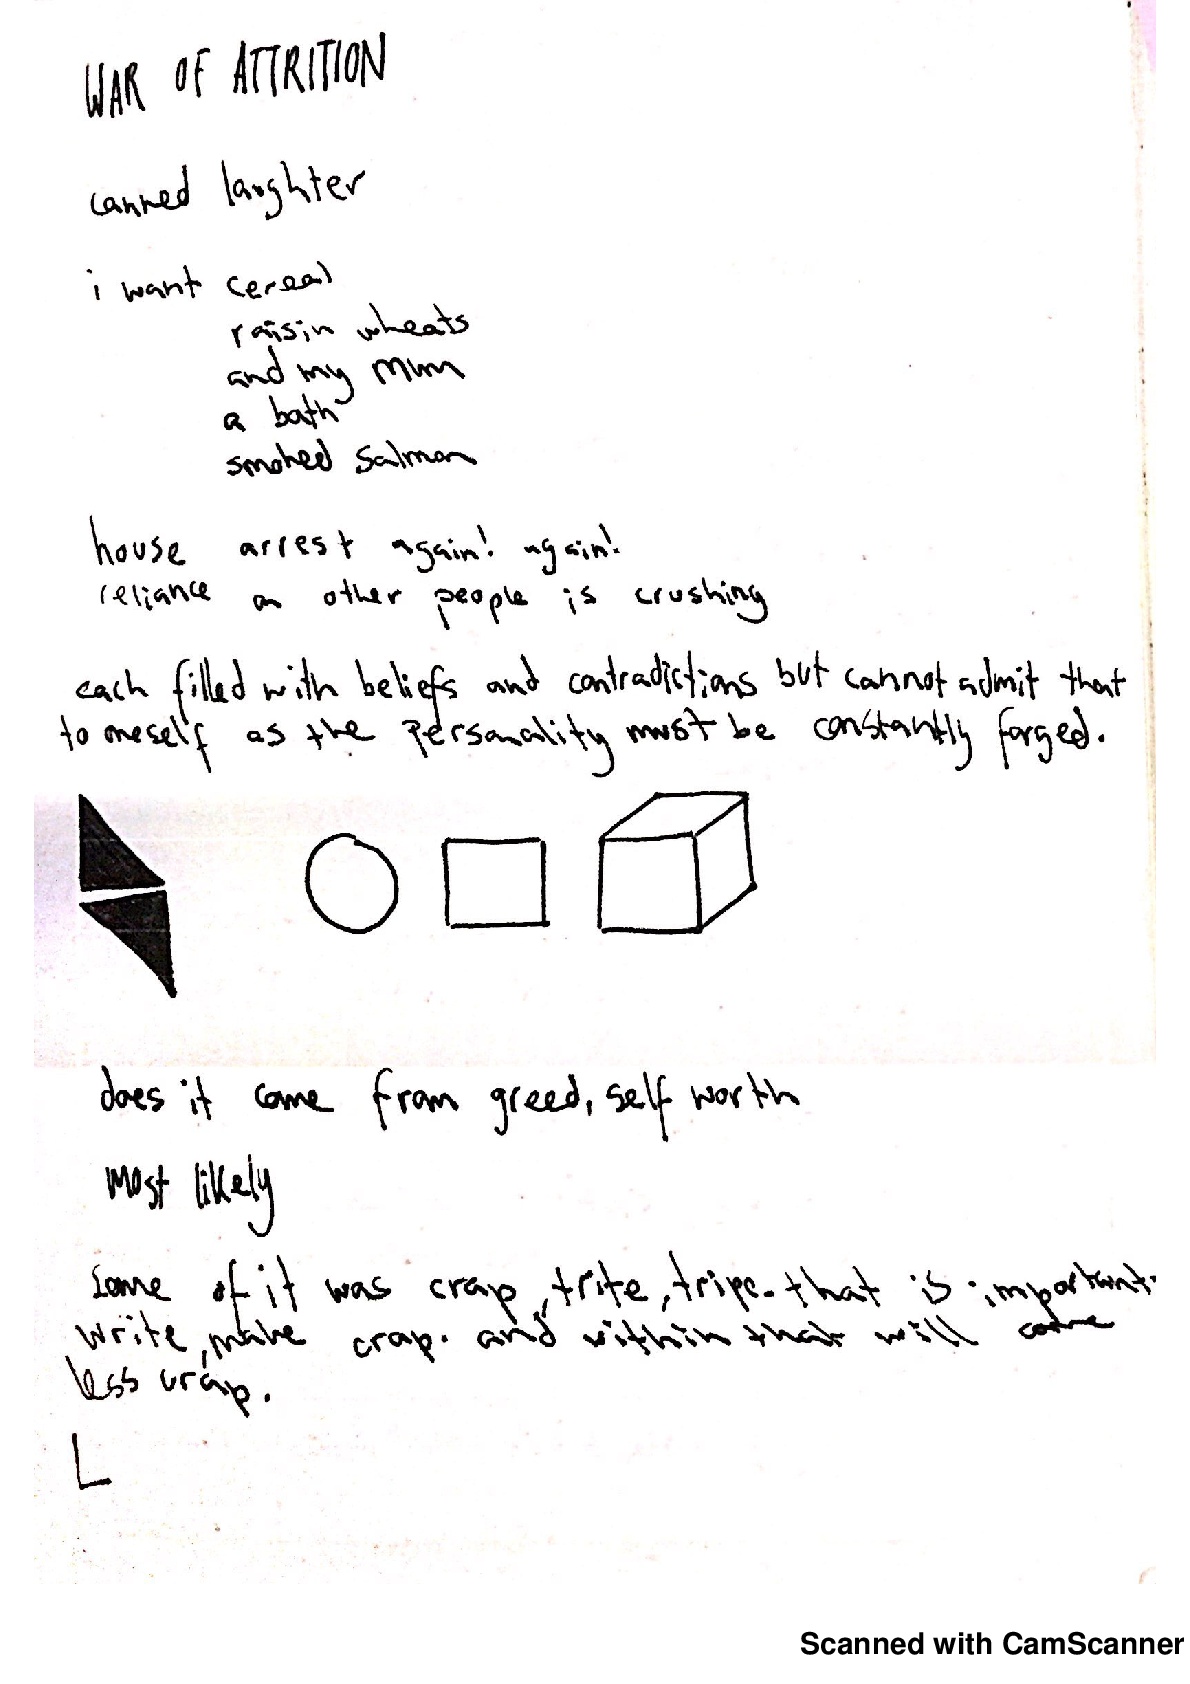 WAR OF ATTRITION
canned laughter
i want cereal
raisin wheats
and my mum
a bath
smoked salmon
house arrest again! again!
reliance on other people is crushing
each filled with beliefs and contradictions but cannot admit that
to oneself as the personality must be constantly forged.
does it come from greed, self worth
most likely
some of it was crap, trite, tripe. that is important.
write, make crap. and within that will come
less crap.
L
Scanned with CamScanner